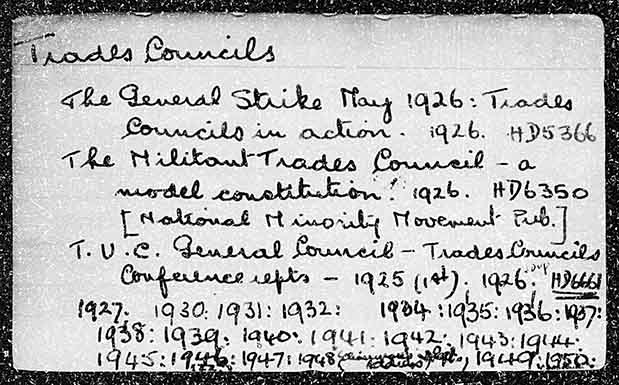 Trades Councils
The General Strike May 1926: Trades
Councils in action. 1926. HD5366
The Militant Trades Council - a
model constitution. 1926. HD6350
[National Minority Movement Pub.]
T.U.C. General Council - Trades Councils
Conference repts - 1925 (1st). 1926. HD6661
1927: 1930: 1931: 1932: 1934: 1935: 1936: 1937:
1938: 1939: 1940: 1941: 1942: 1943: 1944:
1945: 1946: 1947: 1948 , 1949: 1950: